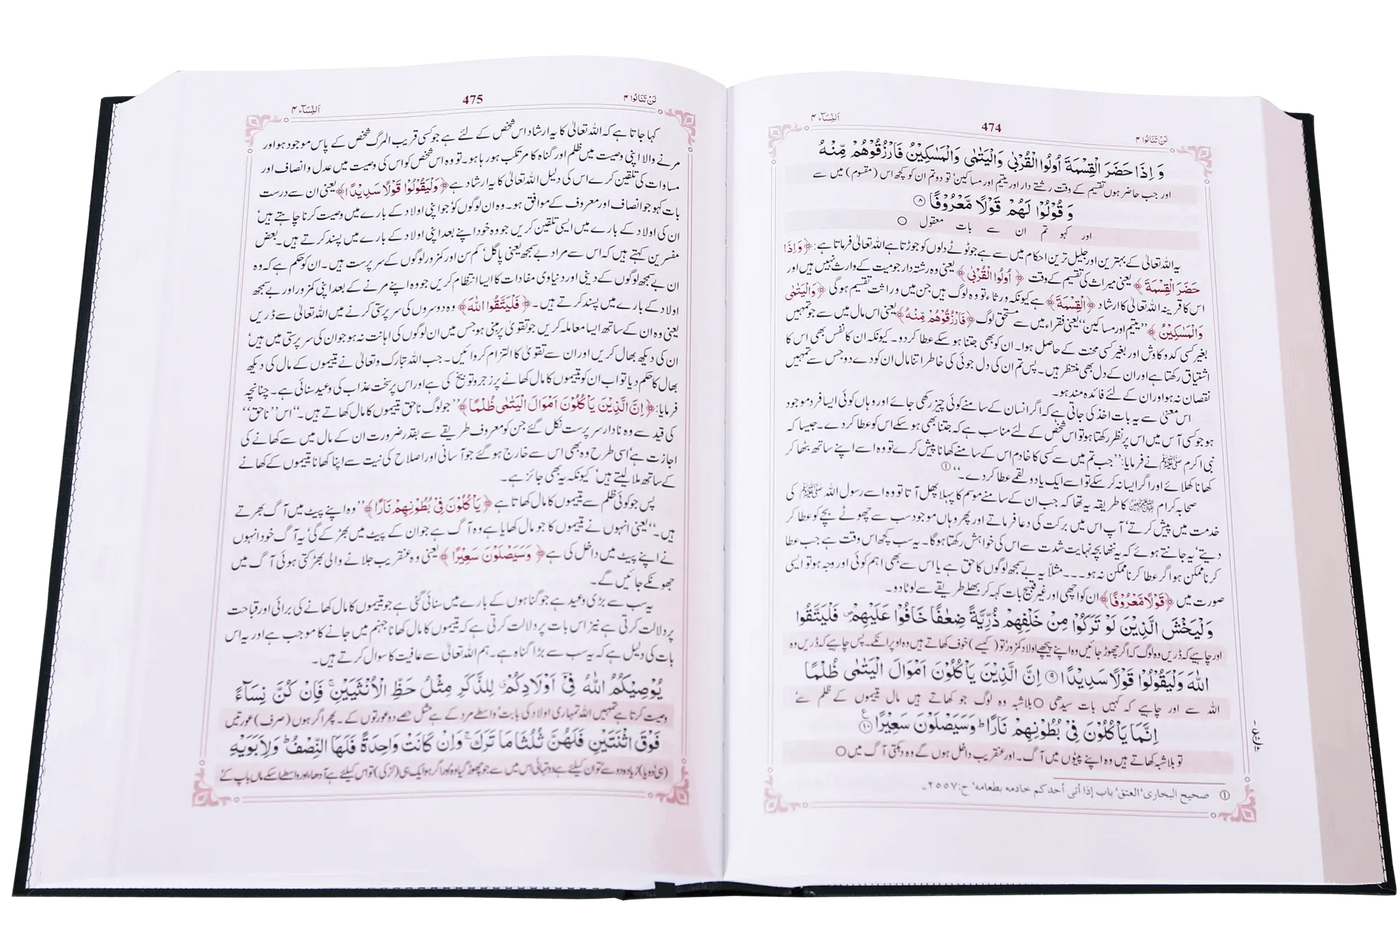 اَلنِّسَآء ۴
474
لَنْ تَنَالُوا ۴
وَ اِذَا حَضَرَ الْقِسْمَةَ اُولُوا الْقُرْبٰى وَالْيَتٰمٰى وَالْمَسٰكِيْنُ فَارْزُقُوْهُمْ مِّنْهُ
اور جب حاضر ہوں تقسیم کے وقت رشتے دار اور یتیم اور مساکین' تو دو تم ان کو کچھ اس (مقسوم) میں سے
وَ قُوْلُوْا لَهُمْ قَوْلًا مَّعْرُوْفًا ⑧
اور کہو تم ان سے بات معقول ○
یہ اللہ تعالیٰ کے بہترین اور جلیل ترین احکام میں سے ہے جو ٹوٹے دلوں کو جوڑتا ہے اللہ تعالیٰ فرماتا ہے: ﴿وَ اِذَا
حَضَرَ الْقِسْمَةَ﴾ یعنی میراث کی تقسیم کے وقت ﴿اُولُوا الْقُرْبٰى﴾ یعنی وہ رشتہ دار جو میت کے وارث نہیں ہیں اور
اس کا قرینہ اللہ تعالیٰ کا ارشاد ﴿الْقِسْمَةَ﴾ ہے کیونکہ ورثاء تو وہ لوگ ہیں جن میں وراثت تقسیم ہو گی ﴿وَالْيَتٰمٰى
وَالْمَسٰكِيْنُ﴾ ''یتیم اور مساکین'' یعنی فقراء میں سے مستحق لوگ ﴿فَارْزُقُوْهُمْ مِّنْهُ﴾ یعنی اس مال میں سے جو تمہیں
بغیر کسی کدو کاوش اور بغیر کسی محنت کے حاصل ہوا۔ ان کو بھی جتنا ہو سکے عطا کر دو۔ کیونکہ ان کا نفس بھی اس کا
اشتیاق رکھتا ہے اور ان کے دل بھی منتظر ہیں۔ پس تم ان کی دل جوئی کی خاطر اتنا مال ان کو دے دو جس سے تمہیں
نقصان نہ ہو اور ان کے لئے فائدہ مند ہو۔
اس معنی سے یہ بات اخذ کی جاتی ہے کہ اگر انسان کے سامنے کوئی چیز رکھی جائے اور وہاں کوئی ایسا فرد موجود
ہو جو کسی آس میں اس پر نظر رکھتا ہو تو اس شخص کے لئے مناسب ہے کہ جتنا بھی ہو سکے اس کو عطا کر دے۔ جیسا کہ
نبی اکرم ﷺ نے فرمایا: ''جب تم میں سے کسی کا خادم اس کے سامنے کھانا پیش کرے تو وہ اسے اپنے ساتھ بٹھا کر
کھانا کھلائے اور اگر ایسا نہ کر سکے تو اسے ایک یا دو لقمے عطا کر دے۔'' ①
صحابہ کرام کا طریقہ یہ تھا کہ جب ان کے سامنے موسم کا پہلا پھل آتا تو وہ اسے رسول اللہ ﷺ کی
خدمت میں پیش کرتے' آپ اس میں برکت کی دعا فرماتے اور پھر وہاں موجود سب سے چھوٹے بچے کو عطا کر
دیتے' یہ جانتے ہوئے کہ یہ ننھا بچہ نہایت شدت سے اس کی خواہش رکھتا ہوگا۔ یہ سب کچھ اس وقت ہے جب عطا
کرنا ممکن ہو اگر عطا کرنا ممکن نہ ہو۔۔۔ مثلاً یہ بے سمجھ لوگوں کا حق ہے یا اس سے بھی اہم کوئی اور وجہ ہو تو ایسی
صورت میں ﴿قَوْلًا مَّعْرُوْفًا﴾ ان کو اچھی اور غیر قبیح بات کہہ کر بھلے طریقے سے لوٹا دو۔
وَلْيَخْشَ الَّذِيْنَ لَوْ تَرَكُوْا مِنْ خَلْفِهِمْ ذُرِّيَّةً ضِعٰفًا خَافُوْا عَلَيْهِمْ ۪ فَلْيَتَّقُوا
اور چاہیے کہ ڈریں وہ لوگ کہ اگر چھوڑ جائیں وہ اپنے پیچھے اولاد کمزور' تو (کیسے) خوف کھاتے ہیں وہ اوپر انکے۔ پس چاہیے کہ ڈریں وہ
اللّٰهَ وَلْيَقُوْلُوْا قَوْلًا سَدِيْدًا ⑨ اِنَّ الَّذِيْنَ يَاْكُلُوْنَ اَمْوَالَ الْيَتٰمٰى ظُلْمًا
اللہ سے اور چاہیے کہ کہیں بات سیدھی ○ بلاشبہ وہ لوگ جو کھاتے ہیں مال یتیموں کے ظلم سے
اِنَّمَا يَاْكُلُوْنَ فِيْ بُطُوْنِهِمْ نَارًا ؕ وَسَيَصْلَوْنَ سَعِيْرًا ⑩
تو بلاشبہ کھاتے ہیں وہ اپنے پیٹوں میں آگ۔ اور عنقریب داخل ہوں گے وہ دہکتی آگ میں ○
① صحیح البخاری' العتق' باب إذا أتى أحدكم خادمه بطعامه' ح: ٢٥٥٧۔
اَلنِّسَآء ۴
475
لَنْ تَنَالُوا ۴
کہا جاتا ہے کہ اللہ تعالیٰ کا یہ ارشاد اس شخص کے لئے ہے جو کسی قریب المرگ شخص کے پاس موجود ہو اور
مرنے والا اپنی وصیت میں ظلم اور گناہ کا مرتکب ہو رہا ہو۔ تو وہ اس شخص کو اس کی وصیت میں عدل و انصاف اور
مساوات کی تلقین کرے اس کی دلیل اللہ تعالیٰ کا یہ ارشاد ہے ﴿وَلْيَقُوْلُوْا قَوْلًا سَدِيْدًا﴾ یعنی ان سے درست
بات کہو جو انصاف اور معروف کے موافق ہو۔ وہ ان لوگوں کو' جو اپنی اولاد کے بارے میں وصیت کرنا چاہتے ہیں'
ان کی اولاد کے بارے میں ایسی تلقین کریں جو وہ خود اپنے بعد اپنی اولاد کے بارے میں پسند کرتے ہیں۔ بعض
مفسرین کہتے ہیں کہ اس سے مراد بے سمجھ یعنی پاگل' کم سن اور کمزور لوگوں کے سرپرست ہیں۔ ان کو حکم ہے کہ وہ
ان بے سمجھ لوگوں کے دینی اور دنیاوی مفادات کا ایسا انتظام کریں جو وہ اپنے مرنے کے بعد اپنی کمزور اور بے سمجھ
اولاد کے بارے میں پسند کرتے ہیں۔ ﴿فَلْيَتَّقُوا اللّٰهَ﴾ وہ دوسروں کی سرپرستی کرنے میں اللہ تعالیٰ سے ڈریں
یعنی وہ ان کے ساتھ ایسا معاملہ کریں جو تقویٰ پر مبنی ہو جس میں ان لوگوں کی اہانت نہ ہو جو ان کی سرپرستی میں ہیں'
ان کی دیکھ بھال کریں اور ان سے تقویٰ کا التزام کروائیں۔ جب اللہ تبارک و تعالیٰ نے یتیموں کے مال کی دیکھ
بھال کا حکم دیا تو اب ان کو یتیموں کا مال کھانے پر زجر و توبیخ کی ہے اور اس پر سخت عذاب کی وعید سنائی ہے۔ چنانچہ
فرمایا: ﴿اِنَّ الَّذِيْنَ يَاْكُلُوْنَ اَمْوَالَ الْيَتٰمٰى ظُلْمًا﴾ ''جو لوگ ناحق یتیموں کا مال کھاتے ہیں۔'' اس ''ناحق''
کی قید سے وہ نادار سرپرست نکل گئے جن کو معروف طریقے سے بقدر ضرورت ان کے مال میں سے کھانے کی
اجازت ہے' اسی طرح وہ بھی اس سے خارج ہو گئے جو آسانی اور اصلاح کی نیت سے اپنا کھانا یتیموں کے کھانے
کے ساتھ ملا لیتے ہیں' کیونکہ یہ بھی جائز ہے۔
پس جو کوئی ظلم سے یتیموں کا مال کھاتا ہے ﴿يَاْكُلُوْنَ فِيْ بُطُوْنِهِمْ نَارًا﴾ ''وہ اپنے پیٹ میں آگ بھرتے
ہیں۔'' یعنی انہوں نے یتیموں کا جو مال کھایا ہے وہ آگ ہے جو ان کے پیٹ میں بھڑکے گی' یہ آگ خود انہوں
نے اپنے پیٹ میں داخل کی ہے ﴿وَسَيَصْلَوْنَ سَعِيْرًا﴾ یعنی وہ عنقریب جلانے والی بھڑکتی ہوئی آگ میں
جھونکے جائیں گے۔
یہ سب سے بڑی وعید ہے جو گناہوں کے بارے میں سنائی گئی ہے جو یتیموں کا مال کھانے کی برائی اور قباحت
پر دلالت کرتی ہے نیز اس بات پر دلالت کرتی ہے کہ یتیموں کا مال کھانا جہنم میں جانے کا موجب ہے اور یہ اس
بات کی دلیل ہے کہ یہ سب سے بڑا گناہ ہے۔ ہم اللہ تعالیٰ سے عافیت کا سوال کرتے ہیں۔
يُوْصِيْكُمُ اللّٰهُ فِيْٓ اَوْلَادِكُمْ ۗ لِلذَّكَرِ مِثْلُ حَظِّ الْاُنْثَيَيْنِ ۚ فَاِنْ كُنَّ نِسَآءً
وصیت کرتا ہے تمہیں اللہ تمہاری اولاد کی بابت' واسطے مرد کے ہے مثل حصے دو عورتوں کے۔ پھر اگر ہوں (صرف) عورتیں
فَوْقَ اثْنَتَيْنِ فَلَهُنَّ ثُلُثَا مَا تَرَكَ ۚ وَاِنْ كَانَتْ وَاحِدَةً فَلَهَا النِّصْفُ ؕ وَلِاَبَوَيْهِ
(ہی دو ویا) زیادہ دو سے تو ان کیلئے ہے دو تہائی اس میں سے جو چھوڑ گیا وہ اور اگر ہو ایک ہی (لڑکی) تو اس کیلئے ہے آدھا' اور واسطے اسکے ماں باپ کے